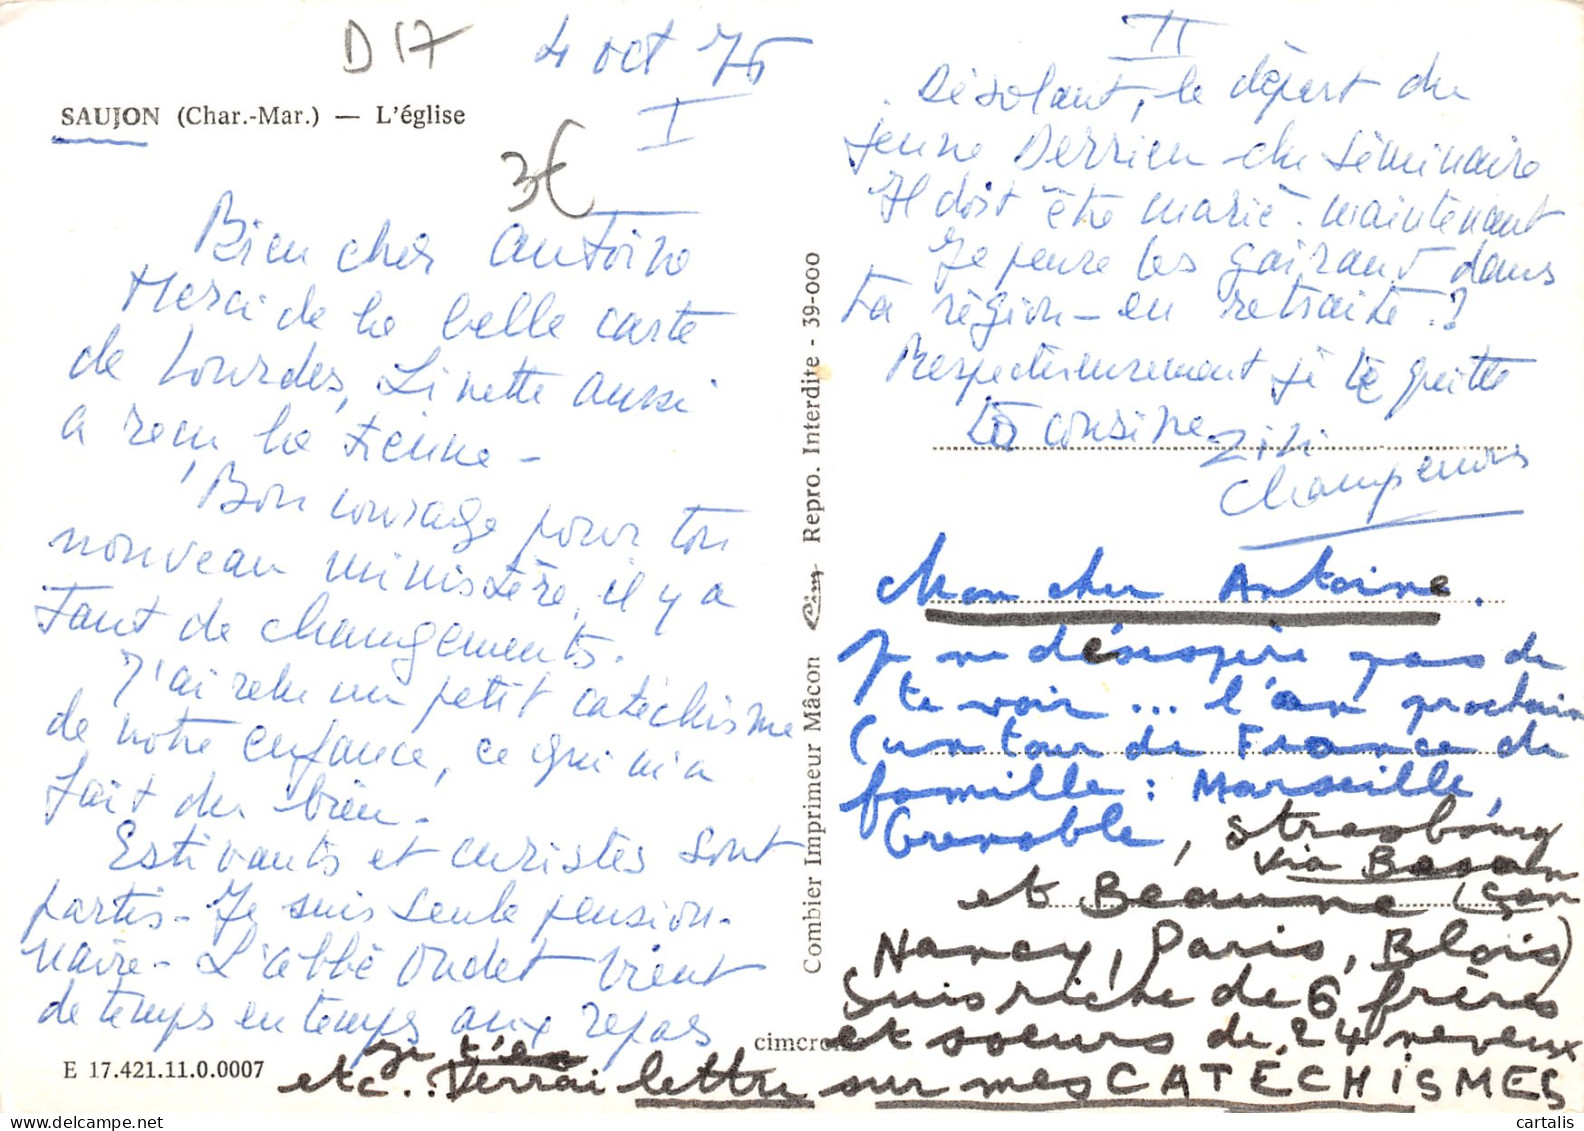 D17
4 oct 76
SAUJON (Char.-Mar.) — L'église
I
3€
Bien cher Antoine
Merci de la belle carte
de Lourdes, Linette aussi
a reçu la tienne -
Bon courage pour ton
nouveau ministère, il y a
tant de changements.
J'ai relu un petit catéchisme
de notre enfance, ce qui m'a
fait du bien.
Estivants et curistes sont
partis - Je suis seule pension-
naire - L'abbé Oudet vient
de temps en temps aux repas
E 17.421.11.0.0007
Combier Imprimeur Mâcon Cim Repro. Interdite - 39-000
cimcrome
II
Désolant, le départ du
jeune Derrien du Séminaire
Il doit être marié maintenant
Je pense les Gairaud dans
ta région - en retraite ?
Respectueusement je te quitte
ta cousine
Zizi
Mon cher Antoine.
Je ne désespère pas de
te voir ... l'an prochain
(un tour de France de
famille : Marseille,
Grenoble, Strasbourg
via Besan
et Beaune (çon
Nancy, Paris, Blois)
Suis riche de 6 frères
et soeurs de 24 neveux
etc.. Je t'en
verrai lettre sur mes CATÉCHISMES
cartalis